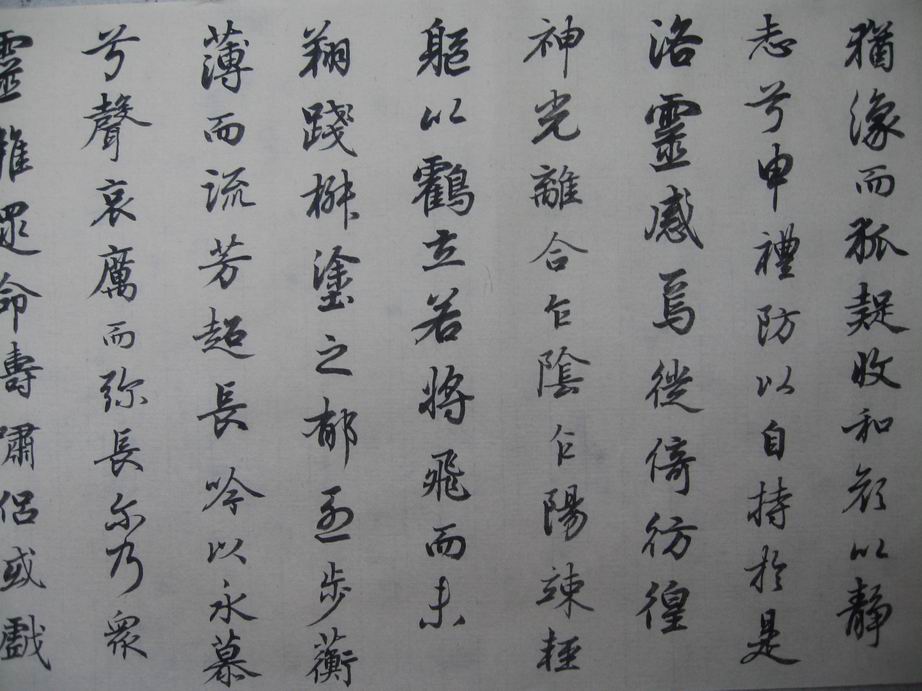 猶豫而狐疑收和顏以靜
志兮申禮防以自持於是
洛靈感焉徙倚彷徨
神光離合乍陰乍陽竦輕
軀以鶴立若將飛而未
翔踐椒塗之郁烈步蘅
薄而流芳超長吟以永慕
兮聲哀厲而彌長尔乃衆
靈雜遝命壽嘯侶或戲